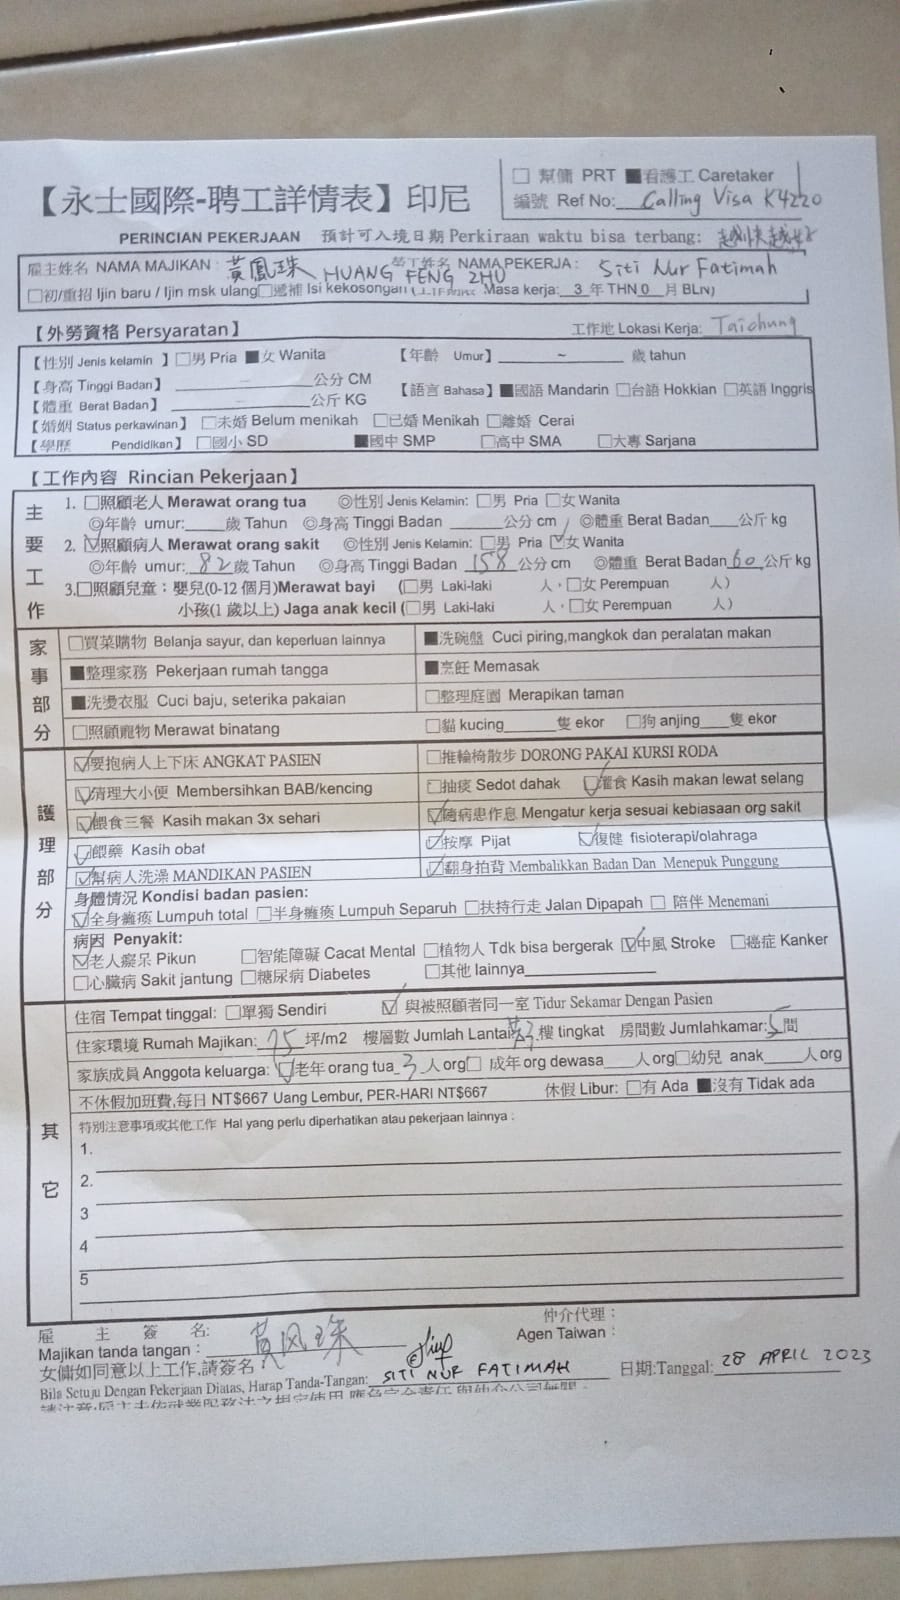 □ 幫傭 PRT ■看護工 Caretaker
【永士國際-聘工詳情表】印尼
編號 Ref No: Calling Visa K4220
PERINCIAN PEKERJAAN 預計可入境日期 Perkiraan waktu bisa terbang: 越快越好
雇主姓名 NAMA MAJIKAN : 黃鳳珠 HUANG FENG ZHU 勞工姓名 NAMA PEKERJA : Siti Nur Fatimah
□初/重招 Ijin baru / Ijin msk ulang □遞補 Isi kekosongan Masa kerja: 3 年 THN 0 月 BLN)
【外勞資格 Persyaratan】 工作地 Lokasi Kerja: Taichung
【性別 Jenis kelamin 】□男 Pria ■女 Wanita 【年齡 Umur】 ~ 歲 tahun
【身高 Tinggi Badan】 公分 CM
【語言 Bahasa】■國語 Mandarin □台語 Hokkian □英語 Inggris
【體重 Berat Badan】 公斤 KG
【婚姻 Status perkawinan】 □未婚 Belum menikah □已婚 Menikah □離婚 Cerai
【學歷 Pendidikan】 □國小 SD ■國中 SMP □高中 SMA □大專 Sarjana
【工作內容 Rincian Pekerjaan】
主要工作
1. □照顧老人 Merawat orang tua ◎性別 Jenis Kelamin: □男 Pria □女 Wanita
◎年齡 umur: 歲 Tahun ◎身高 Tinggi Badan 公分 cm ◎體重 Berat Badan 公斤 kg
2. ☑照顧病人 Merawat orang sakit ◎性別 Jenis Kelamin: □男 Pria ☑女 Wanita
◎年齡 umur: 82 歲 Tahun ◎身高 Tinggi Badan 158 公分 cm ◎體重 Berat Badan 60 公斤 kg
3.□照顧兒童：嬰兒(0-12 個月)Merawat bayi (□男 Laki-laki 人，□女 Perempuan 人)
小孩(1 歲以上) Jaga anak kecil (□男 Laki-laki 人，□女 Perempuan 人)
家事部分
□買菜購物 Belanja sayur, dan keperluan lainnya ■洗碗盤 Cuci piring,mangkok dan peralatan makan
■整理家務 Pekerjaan rumah tangga ■烹飪 Memasak
■洗燙衣服 Cuci baju, seterika pakaian □整理庭園 Merapikan taman
□照顧寵物 Merawat binatang □貓 kucing 隻 ekor □狗 anjing 隻 ekor
護理部分
☑要抱病人上下床 ANGKAT PASIEN □推輪椅散步 DORONG PAKAI KURSI RODA
☑清理大小便 Membersihkan BAB/kencing □抽痰 Sedot dahak ☑灌食 Kasih makan lewat selang
☑餵食三餐 Kasih makan 3x sehari ☑隨病患作息 Mengatur kerja sesuai kebiasaan org sakit
☑餵藥 Kasih obat ☑按摩 Pijat ☑復健 fisioterapi/olahraga
☑幫病人洗澡 MANDIKAN PASIEN ☑翻身拍背 Membalikkan Badan Dan Menepuk Punggung
身體情況 Kondisi badan pasien:
☑全身癱瘓 Lumpuh total □半身癱瘓 Lumpuh Separuh □扶持行走 Jalan Dipapah □ 陪伴 Menemani
病因 Penyakit:
☑老人癡呆 Pikun □智能障礙 Cacat Mental □植物人 Tdk bisa bergerak ☑中風 Stroke □癌症 Kanker
□心臟病 Sakit jantung □糖尿病 Diabetes □其他 lainnya
其它
住宿 Tempat tinggal: □單獨 Sendiri ☑ 與被照顧者同一室 Tidur Sekamar Dengan Pasien
住家環境 Rumah Majikan: 75 坪/m2 樓層數 Jumlah Lantai 樓 tingkat 房間數 Jumlahkamar: 5 間
家族成員 Anggota keluarga: ☑老年 orang tua 3 人 org□ 成年 org dewasa 人 org□幼兒 anak 人 org
不休假加班費,每日 NT$667 Uang Lembur, PER-HARI NT$667 休假 Libur: □有 Ada ■沒有 Tidak ada
特別注意事項或其他工作 Hal yang perlu diperhatikan atau pekerjaan lainnya :
1.
2.
3
4
5
雇主簽名: 仲介代理：
Majikan tanda tangan : 黃凤珠 Agen Taiwan :
女傭如同意以上工作,請簽名
Bila Setuju Dengan Pekerjaan Diatas, Harap Tanda-Tangan: SITI NUR FATIMAH 日期:Tanggal: 28 APRIL 2023